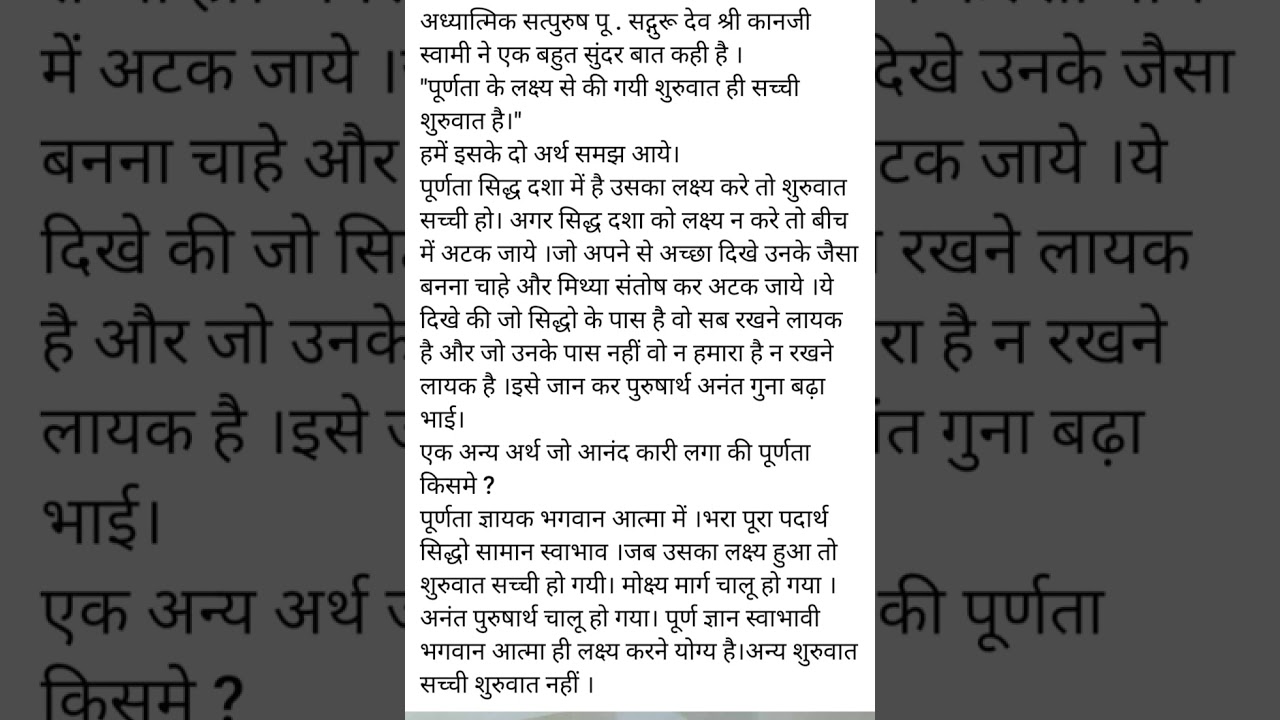 अध्यात्मिक सत्पुरुष पू . सद्गुरू देव श्री कानजी
स्वामी ने एक बहुत सुंदर बात कही है ।
"पूर्णता के लक्ष्य से की गयी शुरुवात ही सच्ची
शुरुवात है।"
हमें इसके दो अर्थ समझ आये।
पूर्णता सिद्ध दशा में है उसका लक्ष्य करे तो शुरुवात
सच्ची हो। अगर सिद्ध दशा को लक्ष्य न करे तो बीच
में अटक जाये ।जो अपने से अच्छा दिखे उनके जैसा
बनना चाहे और मिथ्या संतोष कर अटक जाये ।ये
दिखे की जो सिद्धो के पास है वो सब रखने लायक
है और जो उनके पास नहीं वो न हमारा है न रखने
लायक है ।इसे जान कर पुरुषार्थ अनंत गुना बढ़ा
भाई।
एक अन्य अर्थ जो आनंद कारी लगा की पूर्णता
किसमे ?
पूर्णता ज्ञायक भगवान आत्मा में ।भरा पूरा पदार्थ
सिद्धो सामान स्वाभाव ।जब उसका लक्ष्य हुआ तो
शुरुवात सच्ची हो गयी। मोक्ष्य मार्ग चालू हो गया ।
अनंत पुरुषार्थ चालू हो गया। पूर्ण ज्ञान स्वाभावी
भगवान आत्मा ही लक्ष्य करने योग्य है।अन्य शुरुवात
सच्ची शुरुवात नहीं ।